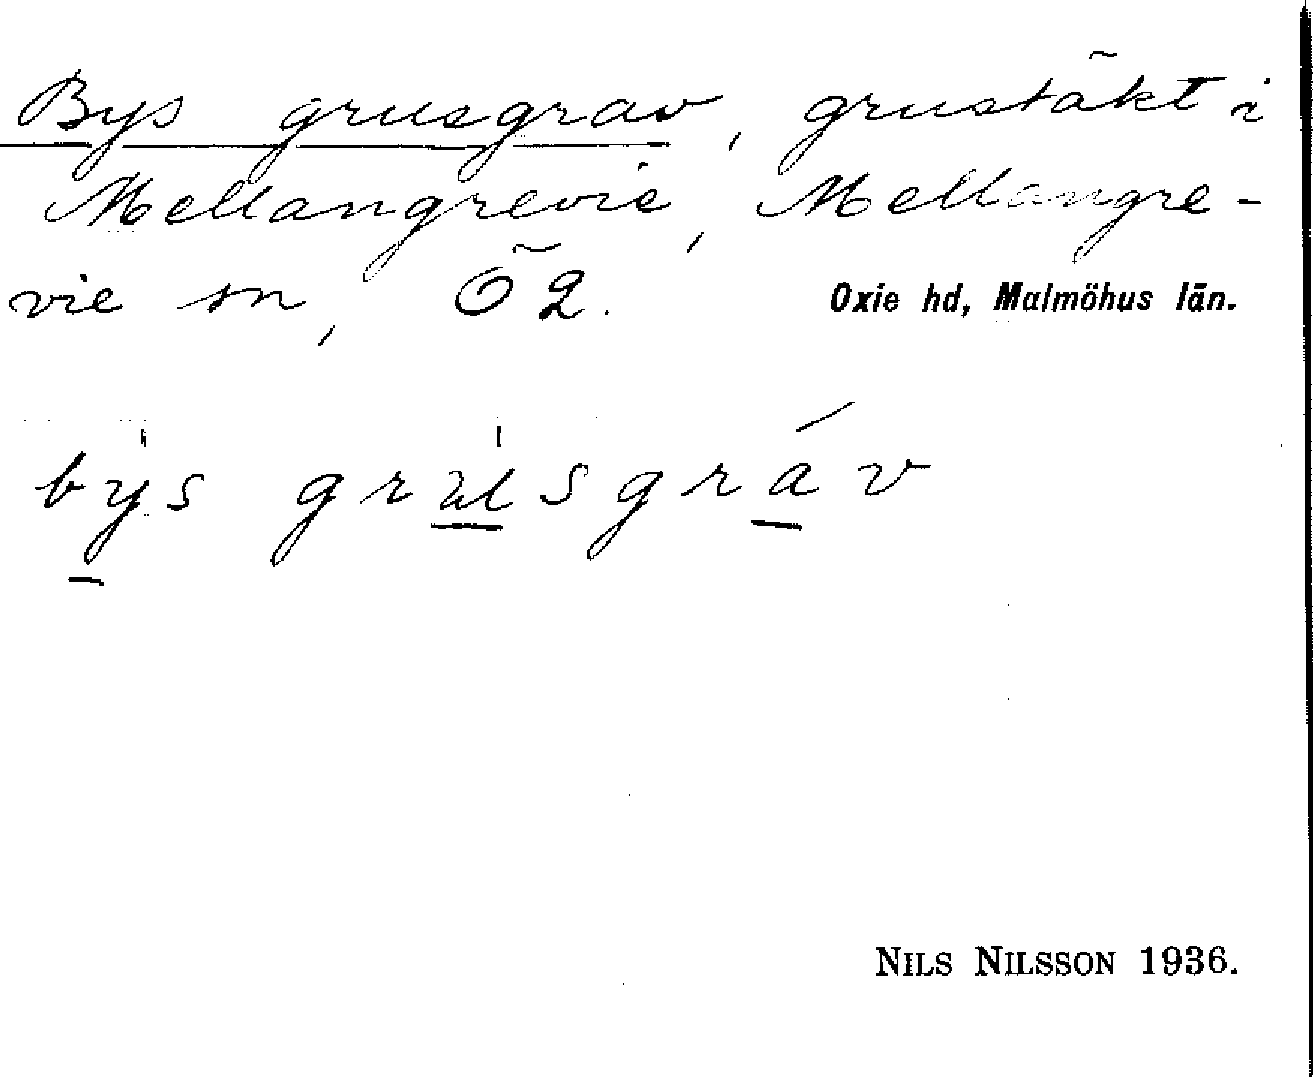 Bys grusgrav, grustäkt i
Mellangrevie, Mellangre-
vie sn, Ö 2. Oxie hd, Malmöhus län.
bys grusgráv
NILS NILSSON 1936.